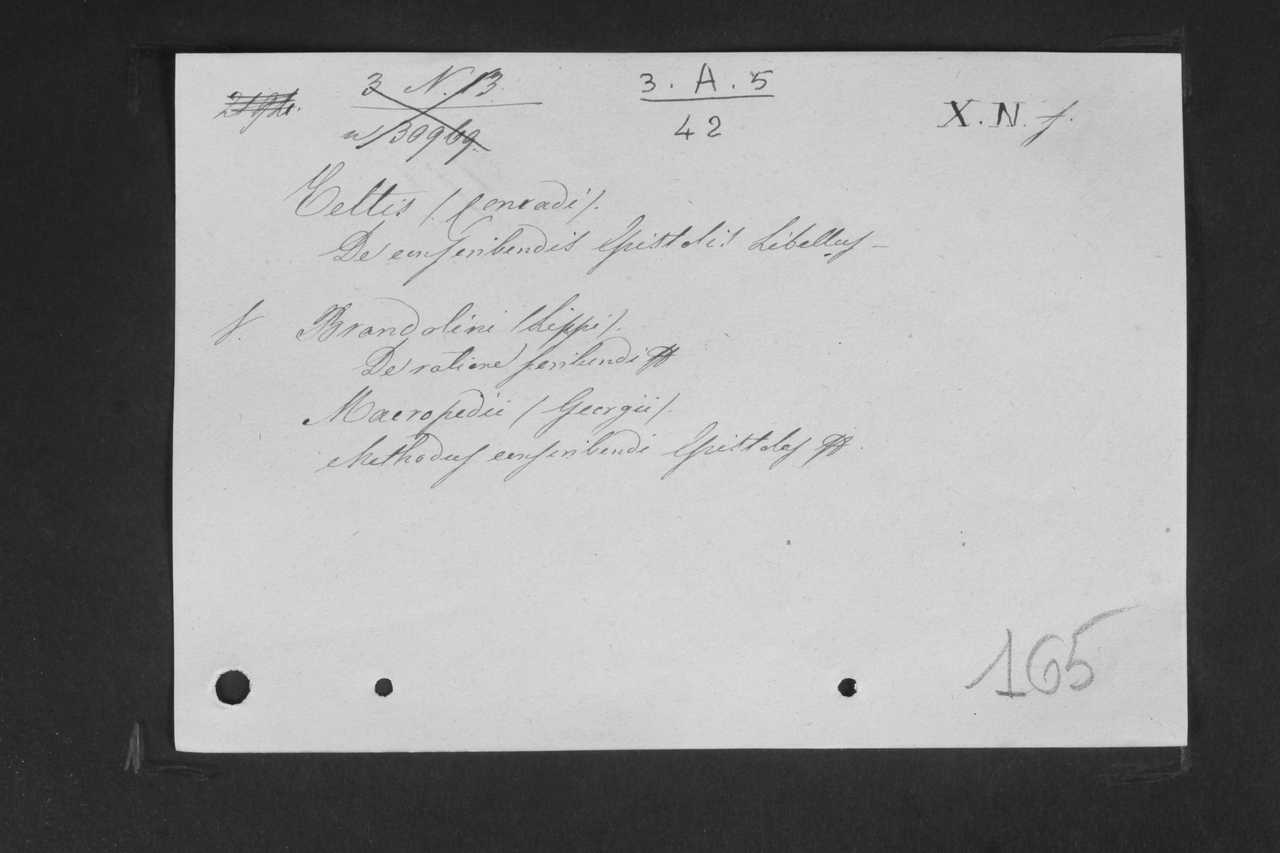 3 N. 13.
3. A. 5
42
X. N. f.
Celtis (Conradi).
De conscribendis Epistolis Libellus –
V. Brandolini (Lippi).
De ratione scribendi
Macropedii (Georgii).
Methodus conscribendi Epistolas
165